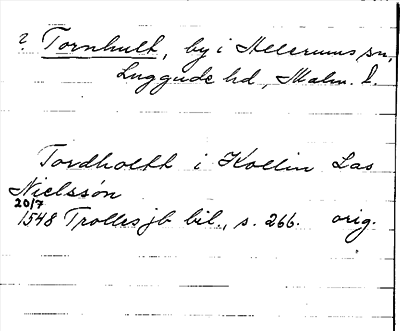 ? Tornhult, by i Allerums sn,
Luggude hd, Malm. l.
Tordholtt i Kollin Las
Nielssøn
20/7
1548 Trolles jb bil., s. 266. orig.